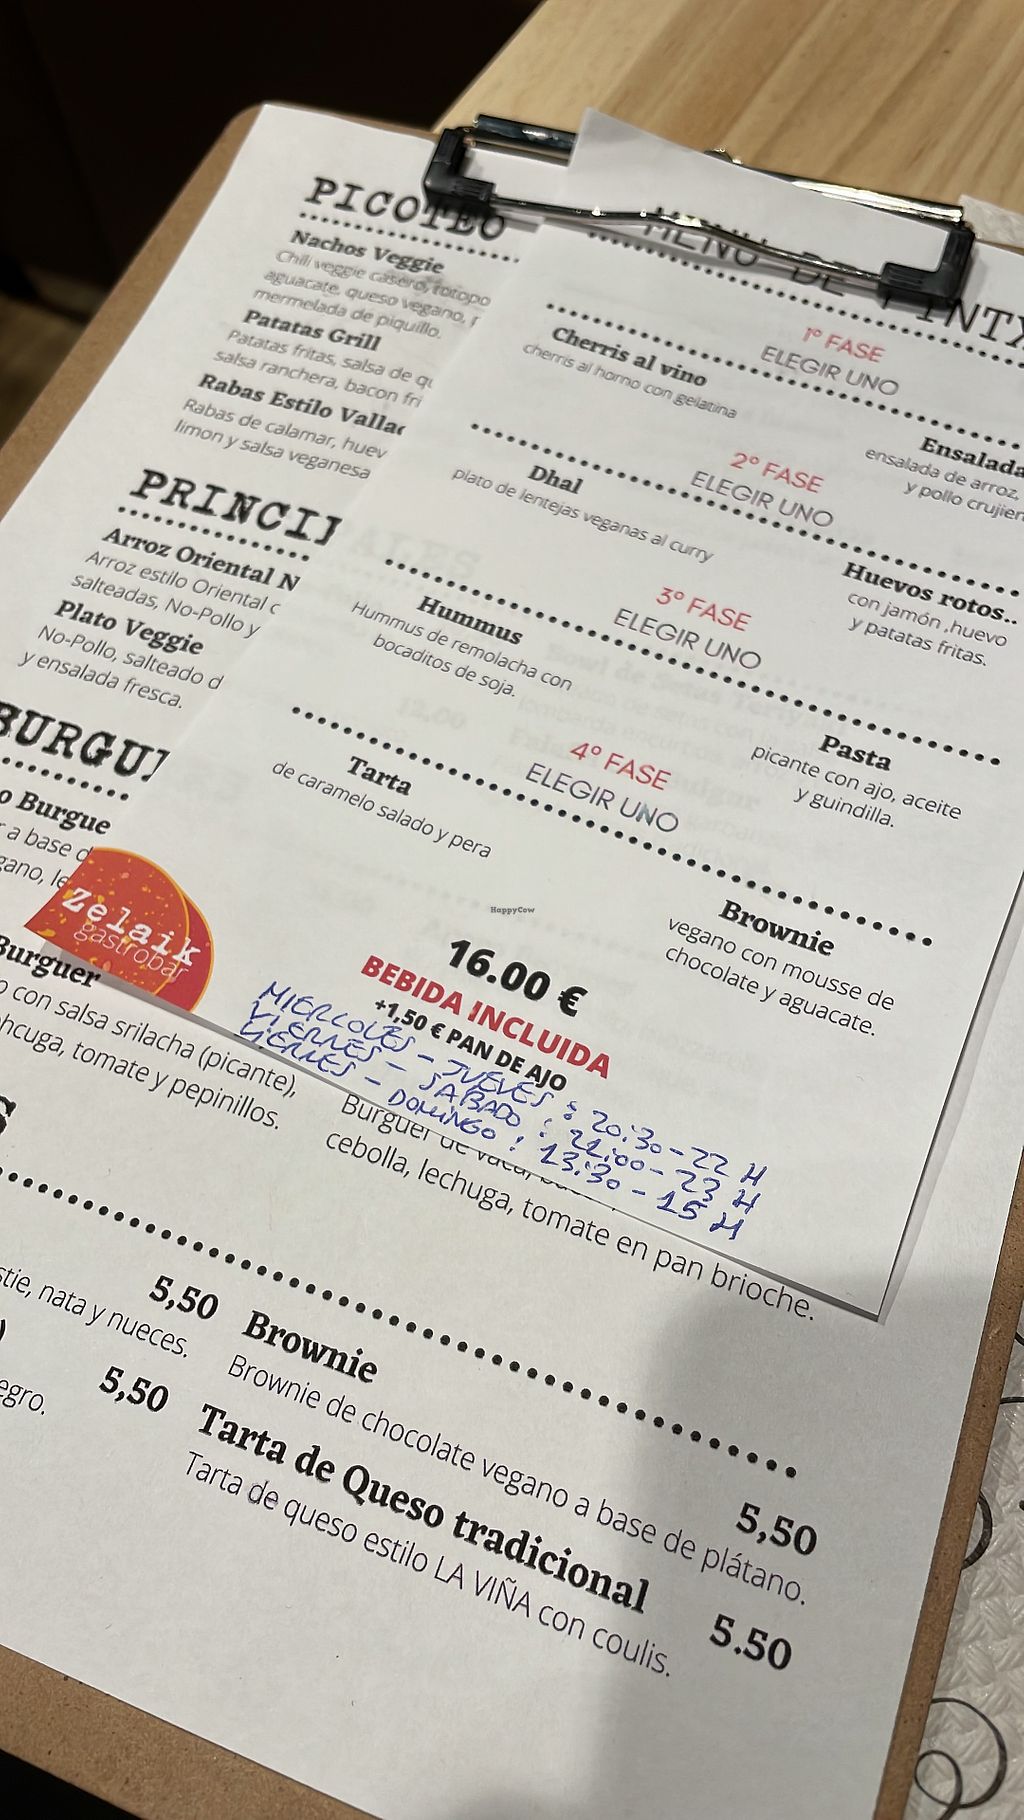 PICOTEO
Nachos Veggie
Chili veggie casero, totopo
aguacate, queso vegano,
mermelada de piquillo.
Patatas Grill
Patatas fritas, salsa de qu
salsa ranchera, bacon fri
Rabas Estilo Vallad
Rabas de calamar, huev
limon y salsa veganesa
PRINCI
Arroz Oriental N
Arroz estilo Oriental c
salteadas, No-Pollo y
Plato Veggie
No-Pollo, salteado d
y ensalada fresca.
BURGU
o Burgue
r a base d
gano, le
Burguer
o con salsa srilacha (picante),
hcuga, tomate y pepinillos.
MENU DE PINTX
1º FASE
ELEGIR UNO
Cherris al vino
cherris al horno con gelatina
Ensalada
ensalada de arroz,
y pollo crujien
2º FASE
ELEGIR UNO
Dhal
plato de lentejas veganas al curry
Huevos rotos..
con jamón ,huevo
y patatas fritas.
3º FASE
ELEGIR UNO
Hummus
Hummus de remolacha con
bocaditos de soja.
Pasta
picante con ajo, aceite
y guindilla.
4º FASE
ELEGIR UNO
Tarta
de caramelo salado y pera
Brownie
vegano con mousse de
chocolate y aguacate.
HappyCow
Zelaik
gastrobar
16.00 €
BEBIDA INCLUIDA
+1,50 € PAN DE AJO
MIERCOLES - JUEVES : 20:30 - 22 H
VIERNES - SABADO : 21:00 - 23 H
VIERNES - DOMINGO : 13:30 - 15 H
Burguer de vaca,
cebolla, lechuga, tomate en pan brioche.
S
5,50
stie, nata y nueces.
)
5,50
egro.
Brownie
Brownie de chocolate vegano a base de plátano.
5,50
Tarta de Queso tradicional
Tarta de queso estilo LA VIÑA con coulis.
5.50